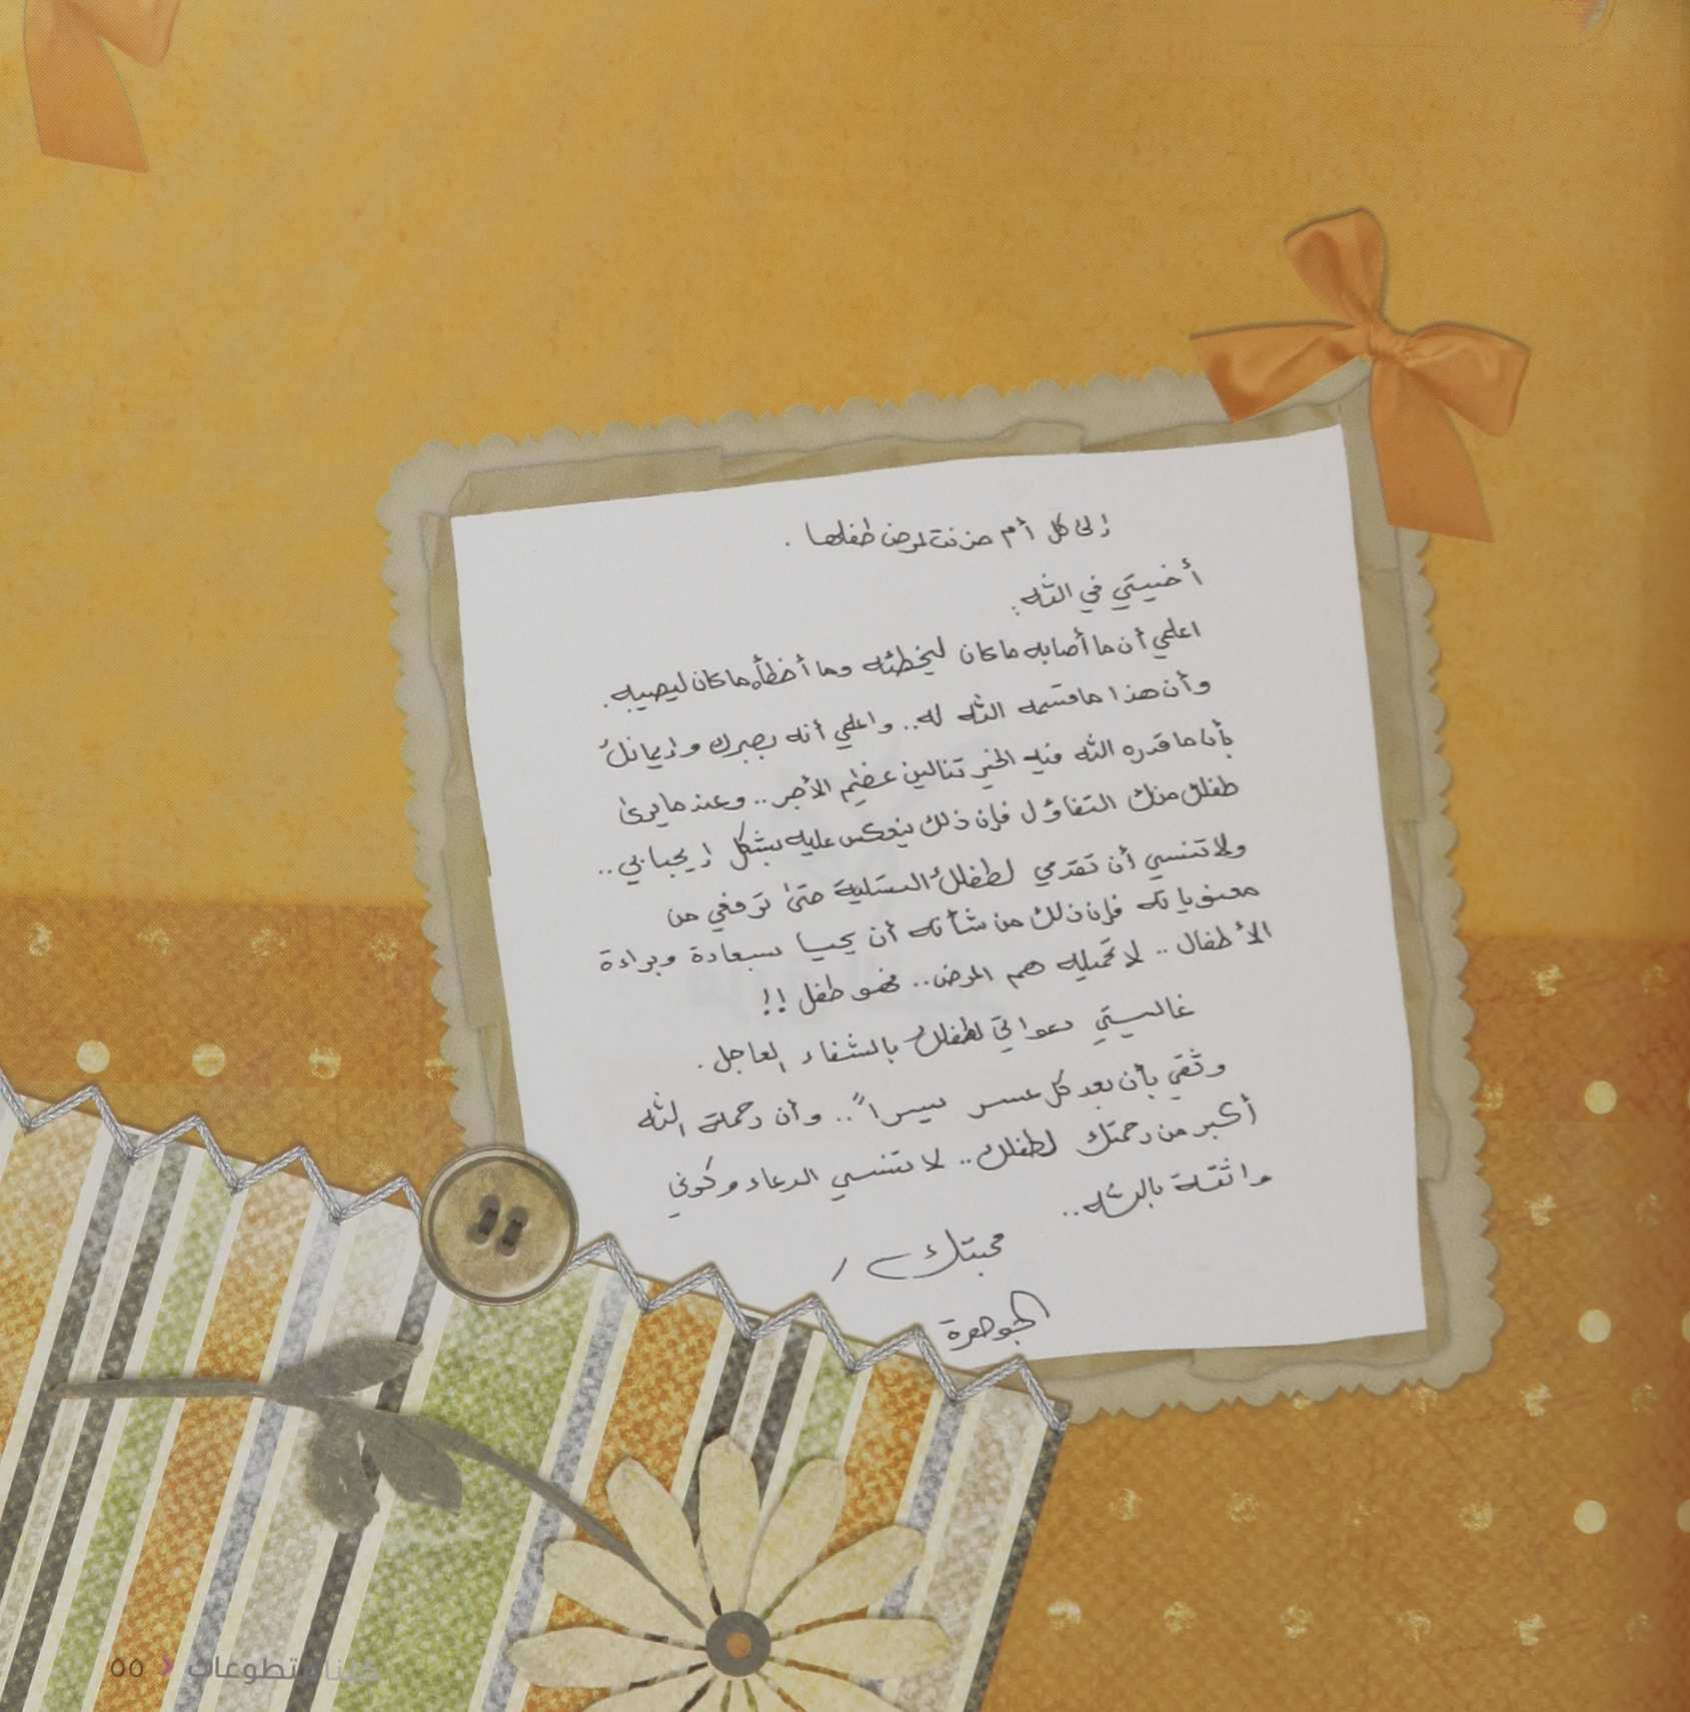 إلى كل أم حزنت لمرض طفلها .
أخيتي في الله :
اعلمي أن ما أصابه ما كان ليخطئه وما أخطأه ما كان ليصيبه .
وأن هذا ما قسمه الله له .. واعلمي أنه بصبرك وإيمانك
بأن ما قدره الله فيه الخير تنالين عظيم الأجر .. وعندما يرى
طفلك منك التفاؤل فإن ذلك ينعكس عليه بشكل إيجابي ..
ولا تنسي أن تقدمي لطفلك التسلية حتى ترفعي من
معنوياته فإن ذلك من شأنه أن يحيا بسعادة وبراءة
الأطفال .. لا تحمليه هم المرض .. فهو طفل !!
غاليتي دعواتي لطفلك بالشفاء العاجل .
وثقي بأن بعد كل عسر يسراً .. وأن رحمة الله
أكبر من رحمتك لطفلك .. لا تنسي الدعاء وكوني
واثقة بالله ..
محبتك /
الجوهرة
متطوعات > ٥٥